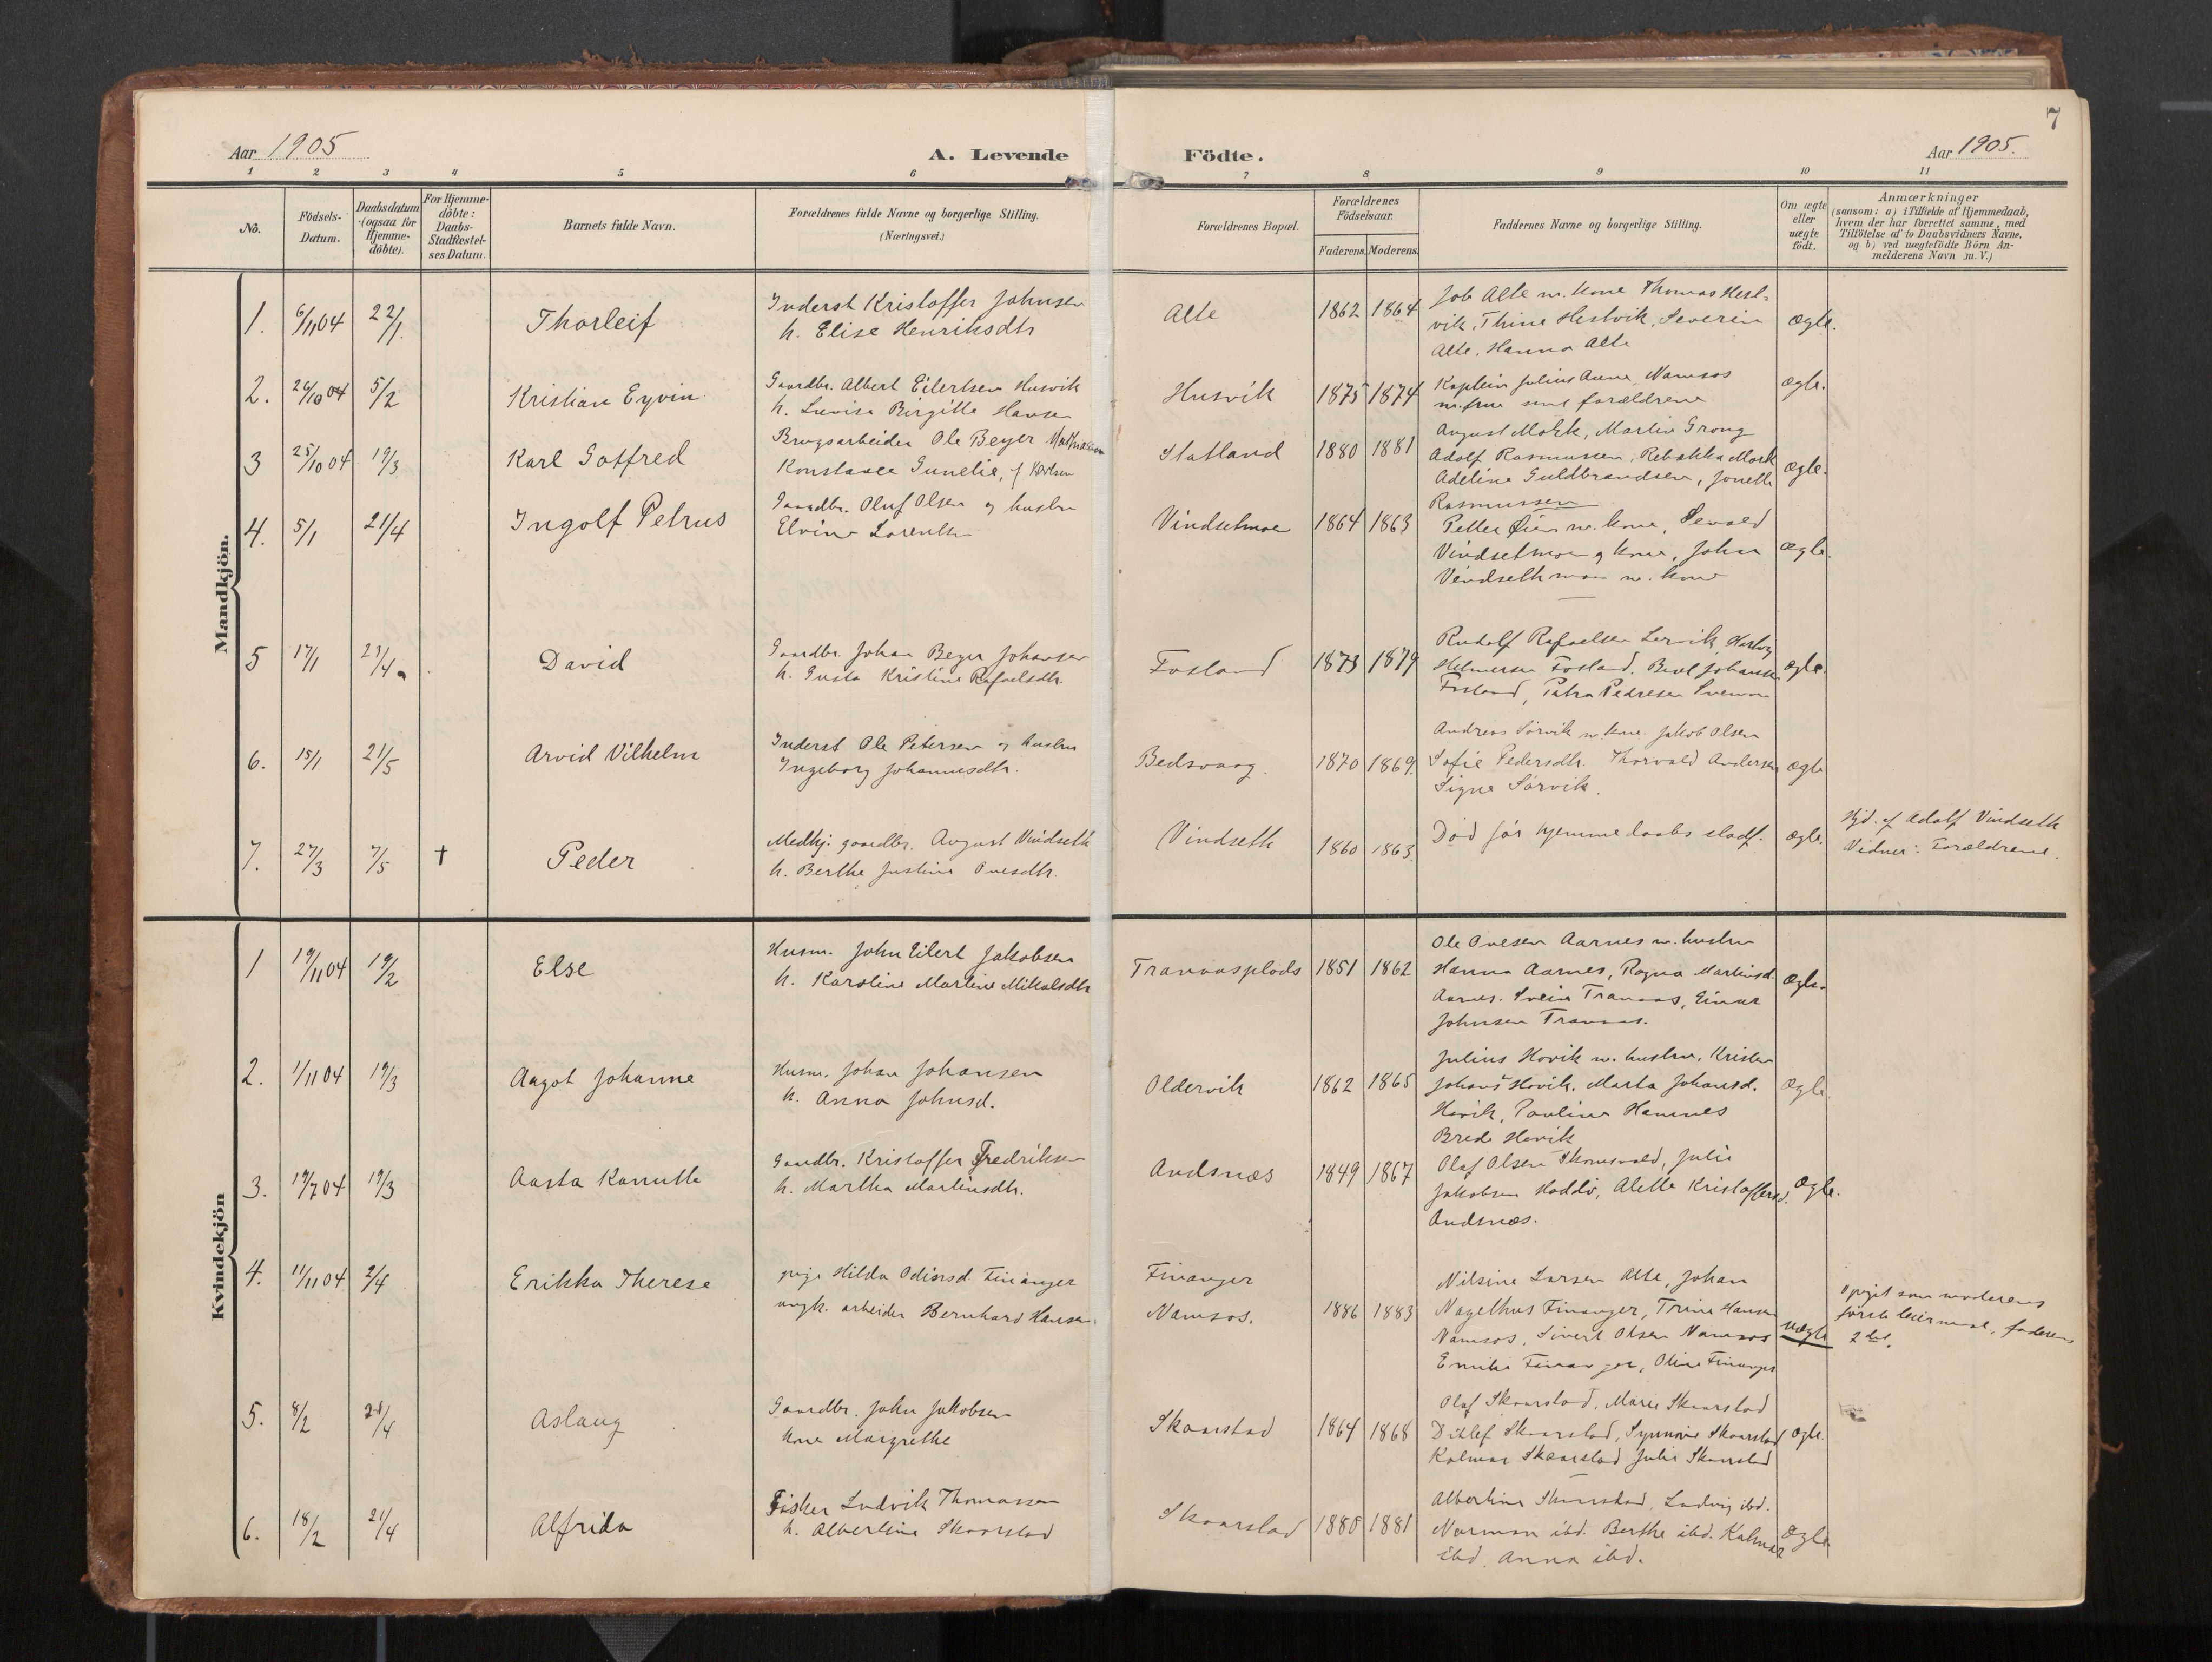 7
Aar 1905
A. Levende
Födte.
Aar 1905.
1 2 3 4 5 6 7 8 9 10 11
No.
Födsels-
Datum.
Daabsdatum
(ogsaa for
Hjemme-
döbte).
For Hjemme-
döbte:
Daabs-
Stadfæstel-
ses Datum.
Barnets fulde Navn.
Forældrenes fulde Navne og borgerlige Stilling.
(Næringsvei.)
Forældrenes Bopæl.
Forældrenes
Födselsaar.
Faderens. Moderens.
Faddernes Navne og borgerlige Stilling.
Om ægte
eller
uægte
födt.
Anmærkninger
(saasom: a) i Tilfælde af Hjemmedaab,
hvem der har forrettet samme, med
Tilföielse af to Daabsvidners Navne.
og b) ved uægtefödte Börn An-
melderens Navn m. V.)
Mandkjön.
1. 6/11 04 22/1. Thorleif
Inderst Kristoffer Johnsen
h. Elise Henriksdtr
Alte 1862 1864
Job Alte m. kone Thomas Hest-
vik, Thine Hestvik, Severin
Alte, Hanna Alte
ægte.
2. 26/10 04 5/2 Kristian Eyvin
Gaardbr. Albert Eilertsen Husvik
h. Lovisa Birgitte Hansen
Husvik 1875 1874
Kaptein Julius Aune, Namsos
m. frue samt forældrene
ægte.
3 25/10 04 19/3 Karl Gotfred
Brugsarbeider Ole Beyer Mathiasen
Konstance Gunelie, f
Statland 1880 1881
August Mork, Martin Grong
Adolf Rasmussen, Rebekka Mork
Adeline Guldbrandsen, Jonette
Rasmussen
ægte.
4. 5/1 21/4 Ingolf Petrus
Gaardbr. Oluf Olsen og hustru
Elvine Lorentsen
Vindsetmoen 1864 1863
Petter Öien m. kone, Sevald
Vindsetmoen og kone, John
Vindsethmoen m. kone
ægte.
5 17/1 21/4 David
Gaardbr. Johan Beyer Johansen
h. Gusta Kristine Rafaelsdtr.
Fosland 1873 1879
Rudolf Rafaelsen Lervik, Hedvig
Helmersen Fosland, Berit Johansen
Fosland, Petra Pedersen
ægte.
6. 15/1 21/5 Arvid Vilhelm
Inderst Ole Petersen og hustru
Ingeborg Johannesdtr.
Bedsvaag. 1870 1869.
Andreas Sörvik m. kone. Jakob Olsen
Sofie Pedersdtr. Thorvald Andersen
Signe Sörvik.
ægte
7. 27/3 7/5 † Peder
Medhj. gaardbr. August Vindseth
h. Berthe Justine Ovesdtr.
Vindseth 1860 1863.
Död för hjemmedaabs stadf.
ægte.
Hjd. af Adolf Vindseth
Vidner: Forældrene.
Kvindekjön
1 19/11 04 19/2 Else
Husm. John Eilert Jakobsen
h. Karoline Martine Mikalsdtr
Tranaasplads 1851 1862
Ole Ovesen Aarnes m. hustru
Hanna Aarnes, Ragna Martinsd.
Aarnes. Svein Tranaas, Einar
Johnsen Tranaas.
ægte.
2. 1/11 04 19/3 Aagot Johanne
Husm. Johan Johansen
h. Anna Johnsd.
Oldervik 1862 1865
Julius Hovik m. hustru, Kristen
Johans. Hovik. Marta Johansd.
Hovik, Pauline Hamnes
Brede Hovik
ægte.
3. 19/7 04 19/3 Aasta Kanutte
Gaardbr. Kristoffer Fredriksen
h. Martha Martinsdtr.
Andsnæs 1849 1867
Olaf Olsen, Julie
Jakobsen Hoddö, Alette Kristoffersd.
Andsnæs.
ægte.
4. 11/11 04 2/4 Erikka Therese
pige Hilda Odinsd. Finanger
ungk. arbeider Bernhard Hansen.
Finanger
Namsos. 1886 1883
Nilsine Larsen Alte, Johan
Nagelhus Finanger, Trine Hansen
Namsos, Sivert Olsen Namsos
Emilie Finanger, Oline Finanger
uægte
Opgit som moderens
förste leiermaal, faderens
2det.
5. 8/2 21/4 Aslaug
Gaardbr. John Jakobsen
kone Margrethe
Skaarstad 1864 1868
Olaf Skaarstad, Marie Skaarstad
Ditlef Skaarstad, Synnöve Skaarstad
Kalmar Skaarstad Julie Skaarstad
ægte.
6. 18/2 21/4 Alfrida
Fisker Ludvik Thomassen
h. Albertine Skaarstad
Skaarstad 1880 1881
Albertine Skaarstad, Ludvig ibd.
Norman ibd. Berthe ibd. Kalmar
ibd. Anna ibd.
ægte